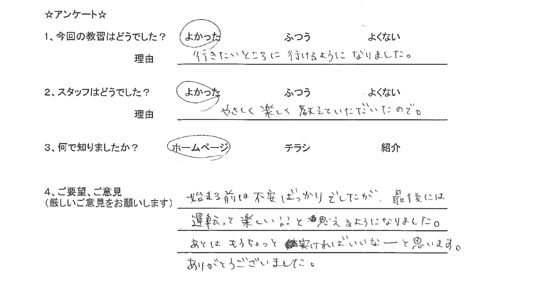 ☆アンケート☆
1、今回の教習はどうでした？ よかった ふつう よくない
理由 行きたいところに行けるようになりました。
2、スタッフはどうでした？ よかった ふつう よくない
理由 やさしく楽しく教えていただいたので。
3、何で知りましたか？ ホームページ チラシ 紹介
4、ご要望、ご意見 始まる前は不安ばっかりでしたが、最後には
（厳しいご意見をお願いします） 運転って楽しい！！と思えるようになりました。
あとはもうちょっと ければいいなーと思います。
ありがとうございました。